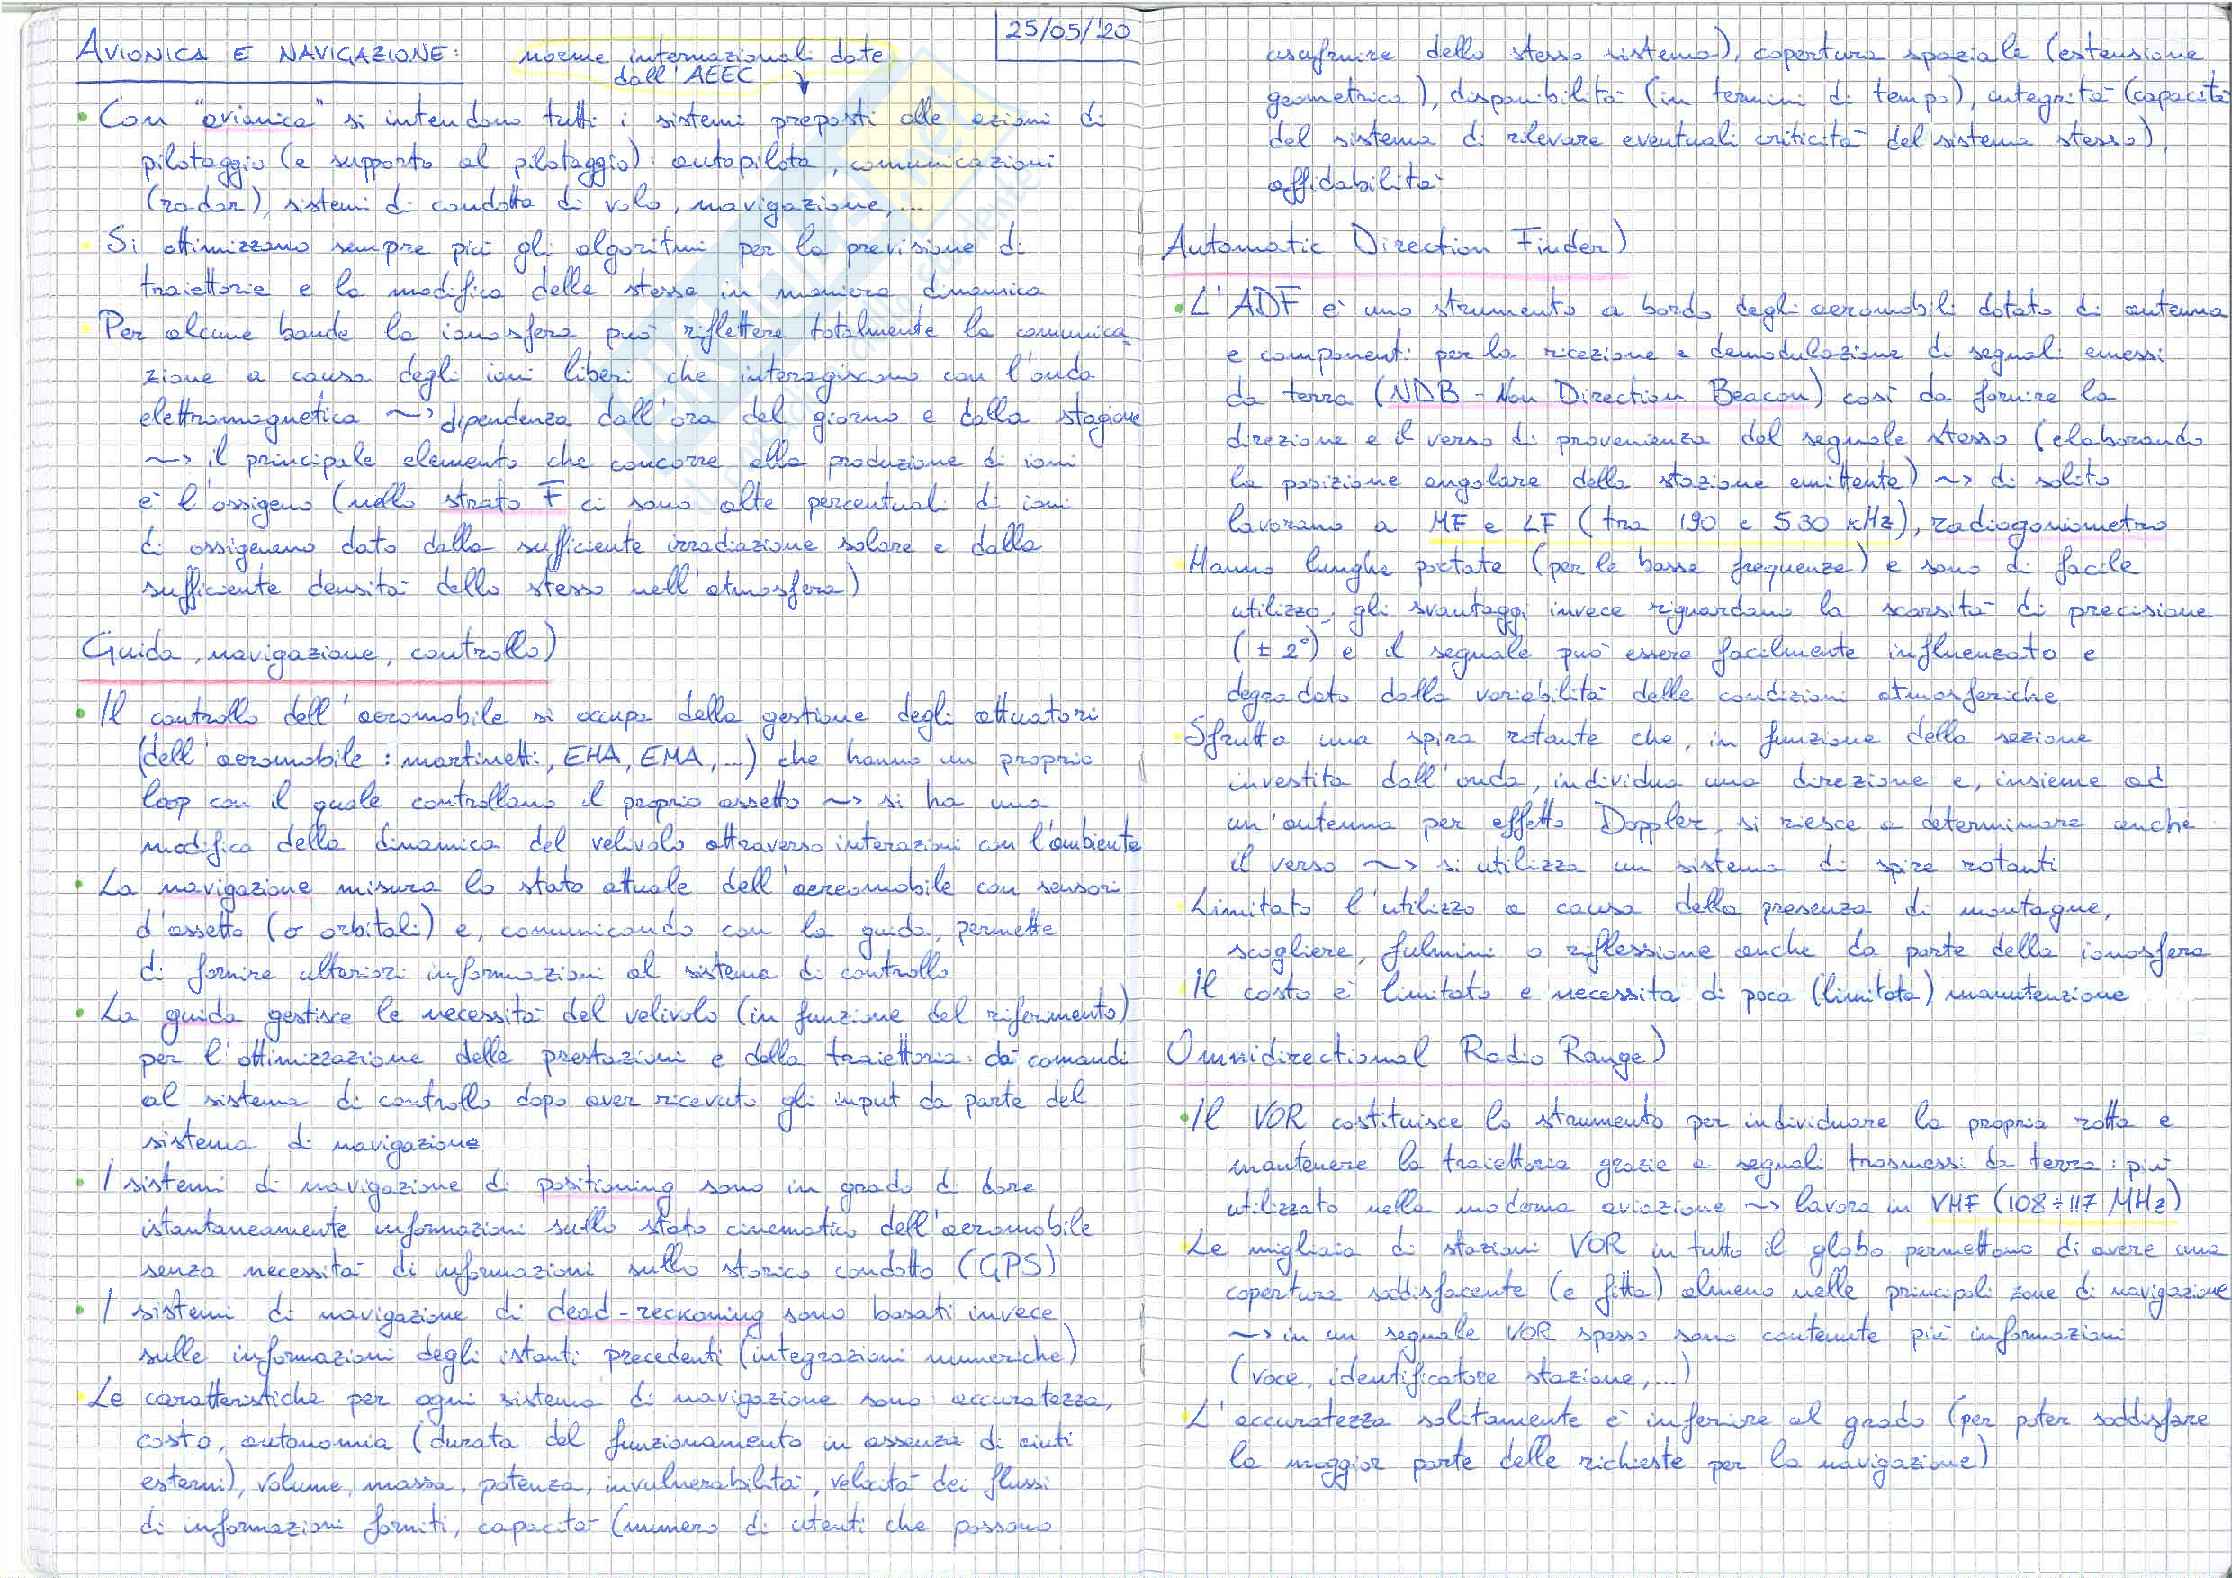 25/05/'20
AVIONICA E NAVIGAZIONE: norme internazionali date
dall'AEEC
• Con "avionica" si intendono tutti i sistemi preposti alle azioni di
pilotaggio (e supporto al pilotaggio): autopilota, comunicazioni
(radar), sistemi di condotta di volo, navigazione,...
• Si ottimizzano sempre più gli algoritmi per la previsione di
traiettorie e la modifica delle stesse in maniera dinamica
• Per alcune bande la ionosfera può riflettere totalmente la comunica
zione a causa degli ioni liberi che interagiscono con l'onda
elettromagnetica ~> dipendenza dall'ora del giorno e dalla stagione
~> il principale elemento che concorre alla produzione di ioni
è l'ossigeno (nello strato F ci sono alte percentuali di ioni
di ossigeneno dato dalla sufficiente irradiazione solare e dalla
sufficiente densità dello stesso nell'atmosfera)
Guida, navigazione, controllo)
• Il controllo dell'aeromobile si occupa della gestione degli attuatori
(dell'aeromobile: martinetti, EHA, EMA,...) che hanno un proprio
loop con il quale controllano il proprio assetto ~> si ha una
modifica della dinamica del velivolo attraverso interazioni con l'ambiente
• La navigazione misura lo stato attuale dell'aereomobile con sensori
d'assetto (o orbitali) e, comunicando con la guida, permette
di fornire ulteriori informazioni al sistema di controllo
• La guida gestisce le necessità del velivolo (in funzione del riferimento)
per l'ottimizzazione delle prestazioni e della traiettoria: dà comandi
al sistema di controllo dopo aver ricevuto gli input da parte del
sistema di navigazione
• I sistemi di navigazione di positioning sono in grado di dare
istantaneamente informazioni sullo stato cinematico dell'aeromobile
senza necessità di informazioni sullo storico condotto (GPS)
• I sistemi di navigazione di dead-reckoning sono basati invece
sulle informazioni degli istanti precedenti (integrazioni numeriche)
• Le caratteristiche per ogni sistema di navigazione sono: accuratezza,
costo, autonomia (durata del funzionamento in assenza di aiuti
esterni), volume, massa, potenza, invulnerabilità, velocità dei flussi
di informazioni forniti, capacità (numero di utenti che possono
usufruire dello stesso sistema), copertura spaziale (estensione
geometrica), disponibilità (in termini di tempo), integrità (capacità
del sistema di rilevare eventuali criticità del sistema stesso),
affidabilità
Automatic Direction Finder)
• L'ADF è uno strumento a bordo degli aeromobili dotato di antenna
e componenti per la ricezione e demodulazione di segnali emessi
da terra (NDB - Non Direction Beacon) così da fornire la
direzione e il verso di provenienza del segnale stesso (elaborando
la posizione angolare della stazione emittente) ~> di solito
lavorano a MF e LF (tra 190 e 530 kHz), radiogoniometro
• Hanno lunghe portate (per le basse frequenze) e sono di facile
utilizzo, gli svantaggi invece riguardano la scarsità di precisione
(± 2°) e il segnale può essere facilmente influenzato e
degradato dalla variabilità delle condizioni atmosferiche
• Sfrutta una spira rotante che, in funzione della sezione
investita dall'onda, individua una direzione e, insieme ad
un'antenna per effetto Doppler, si riesce a determinare anche
il verso ~> si utilizza un sistema di spire rotanti
• Limitato l'utilizzo a causa della presenza di montagne,
scogliere, fulmini o riflessione anche da parte della ionosfera
• Il costo è limitato e necessita di poca (limitata) manutenzione
Omnidirectional Radio Range)
• Il VOR costituisce lo strumento per individuare la propria rotta e
mantenere la traiettoria grazie a segnali trasmessi da terra: più
utilizzato nella moderna aviazione ~> lavora in VHF (108÷117 MHz)
• Le migliaia di stazioni VOR in tutto il globo permettono di avere una
copertura soddisfacente (e fitta) almeno nelle principali zone di navigazione
~> in un segnale VOR spesso sono contenute più informazioni
(voce, identificatore stazione,...)
• L'accuratezza solitamente è inferiore al grado (per poter soddisfare
la maggior parte delle richieste per la navigazione)